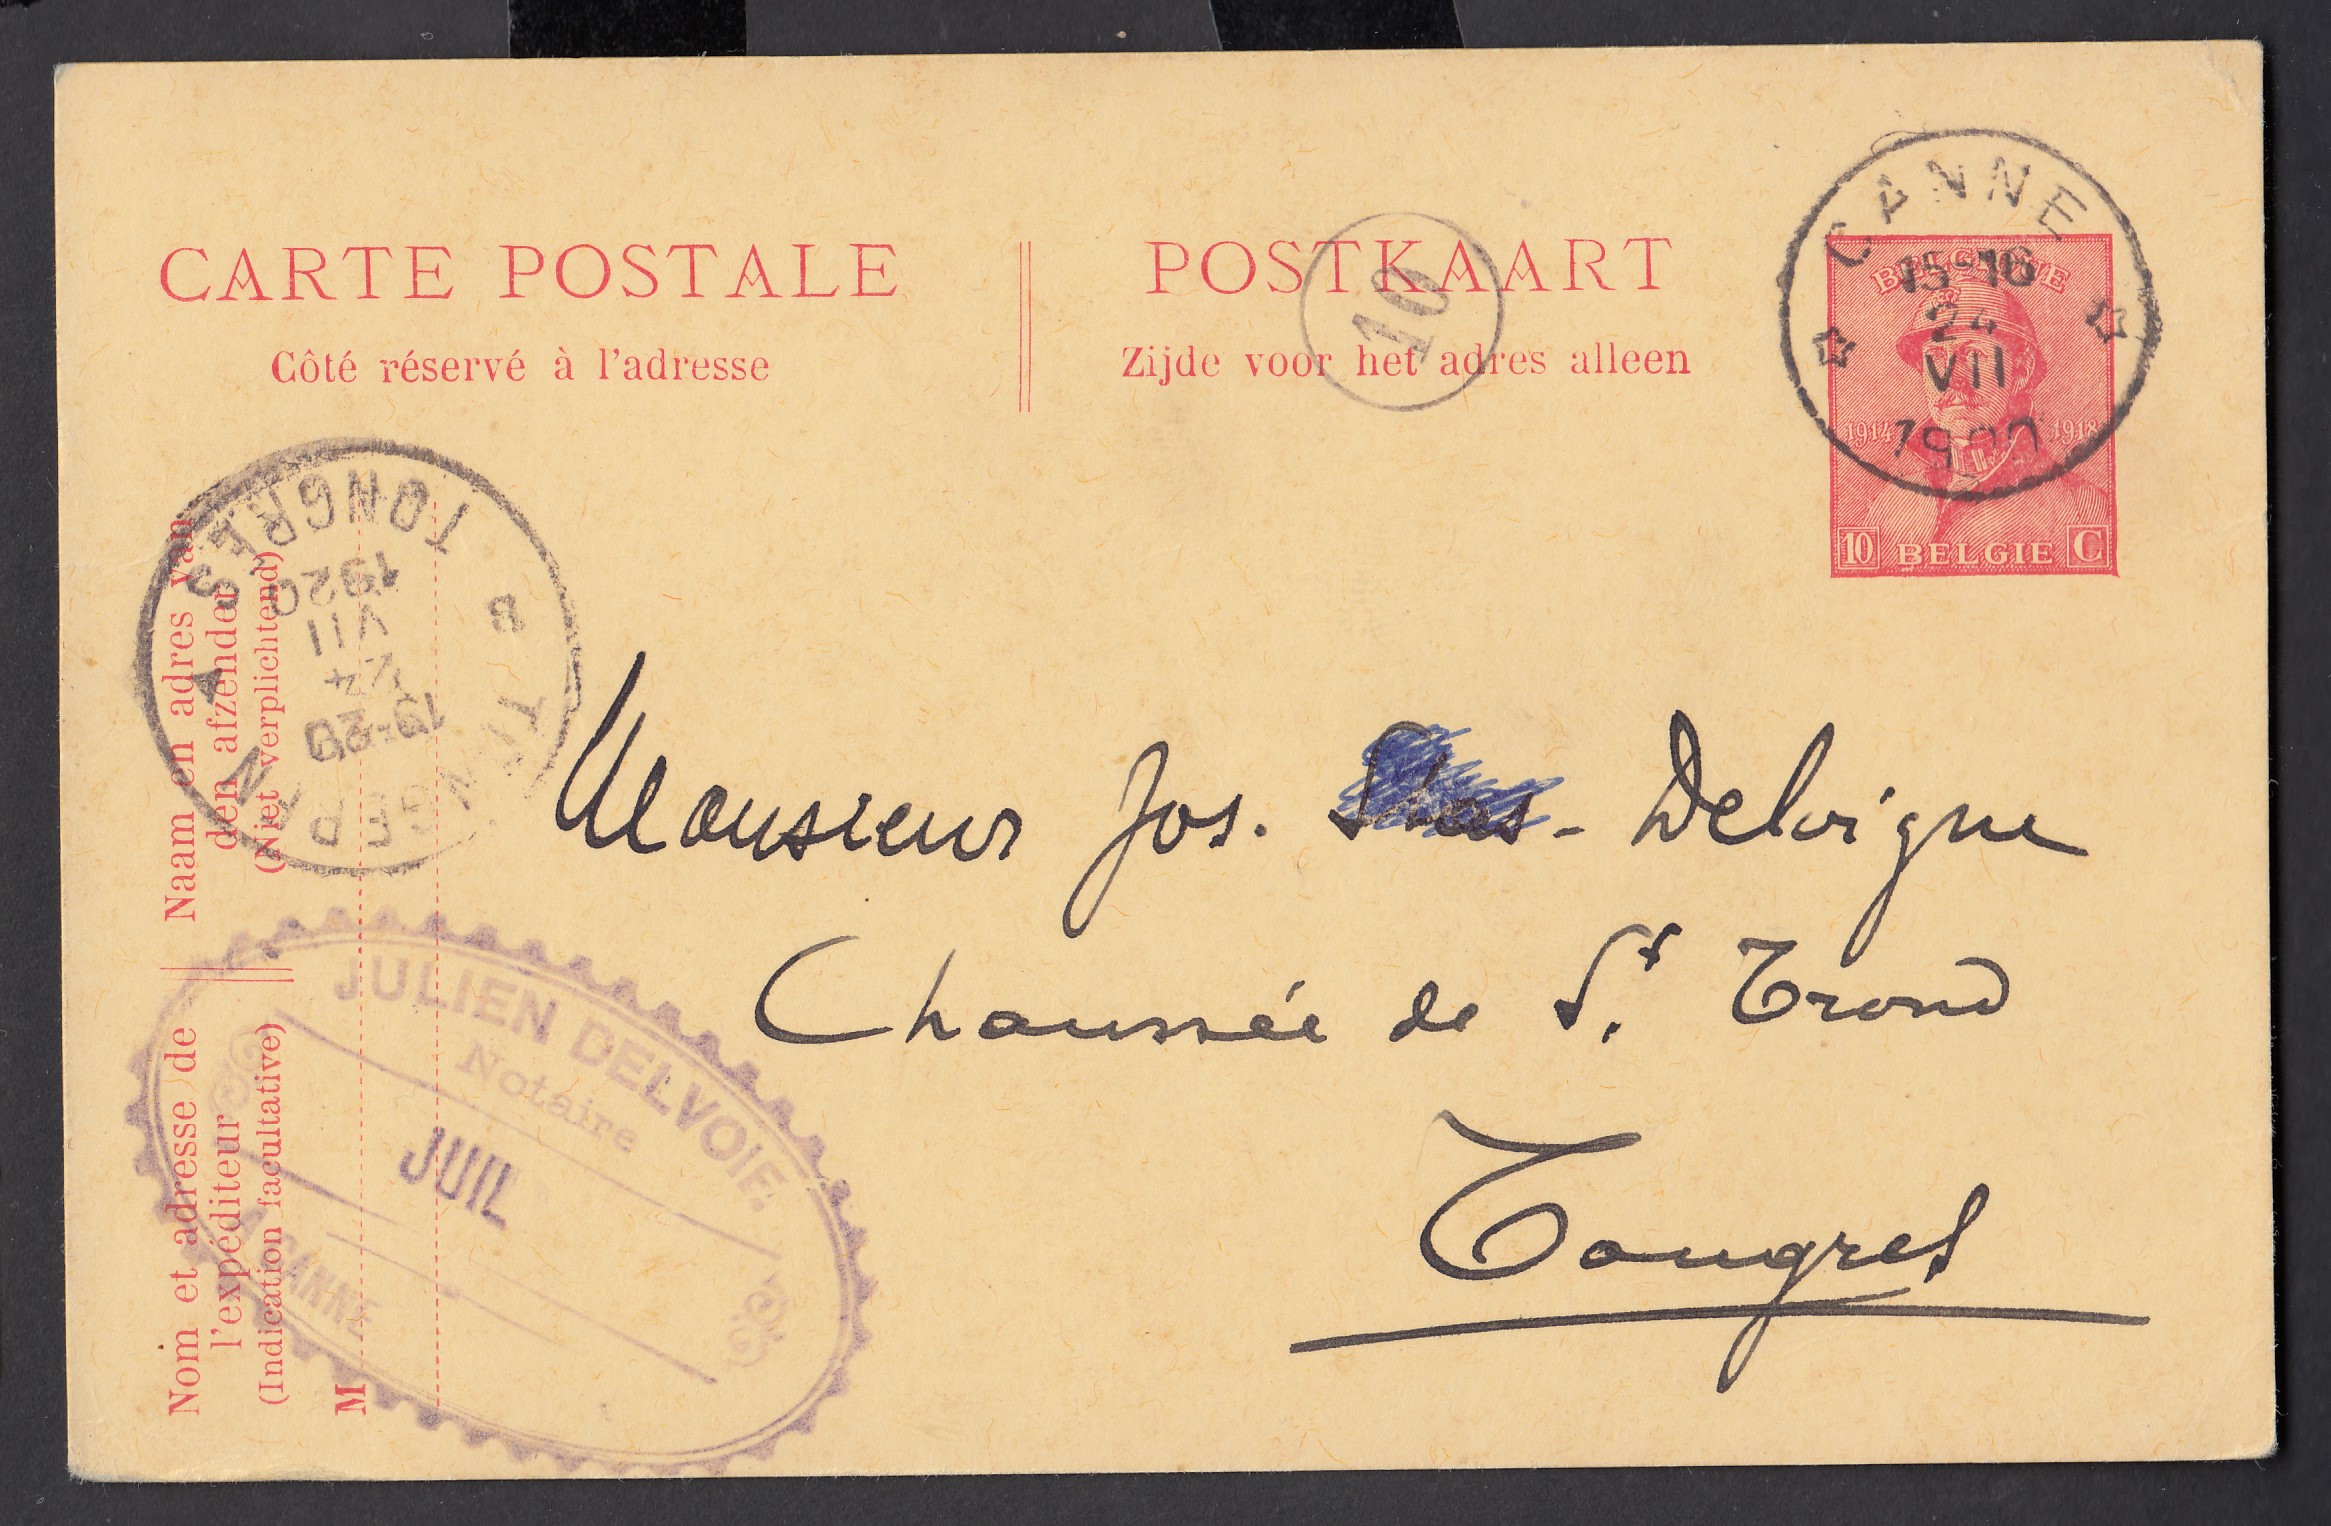 CARTE POSTALE
Côté réservé à l'adresse
POSTKAART
Zijde voor het adres alleen
10
CANNE
15-16
24
VII
1920
BELGIQUE
1914 1918
10 BELGIE C
TONGRES
1920
VII
24
19-20
B
TONGEREN
Naam en adres van
den afzender
(Niet verplichtend)
Nom et adresse de
l'expéditeur
(Indication facultative)
M
JULIEN DELVOIE
Notaire
JUIL
A CANNE
Monsieur Jos. - Delvigne
Chaussée de St. Trond
Tongres